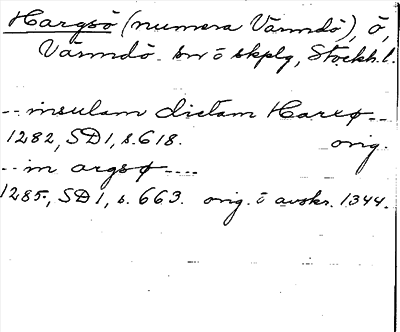 Hargsö (numera Värmdö), ö,
Värmdö sn o skplg, Stockh. l.
-- insulam dictam Harxø --
1282, SD 1, s. 618. orig.
-- in argsø ----
1285, SD 1, s. 663. orig. o avskr. 1344.